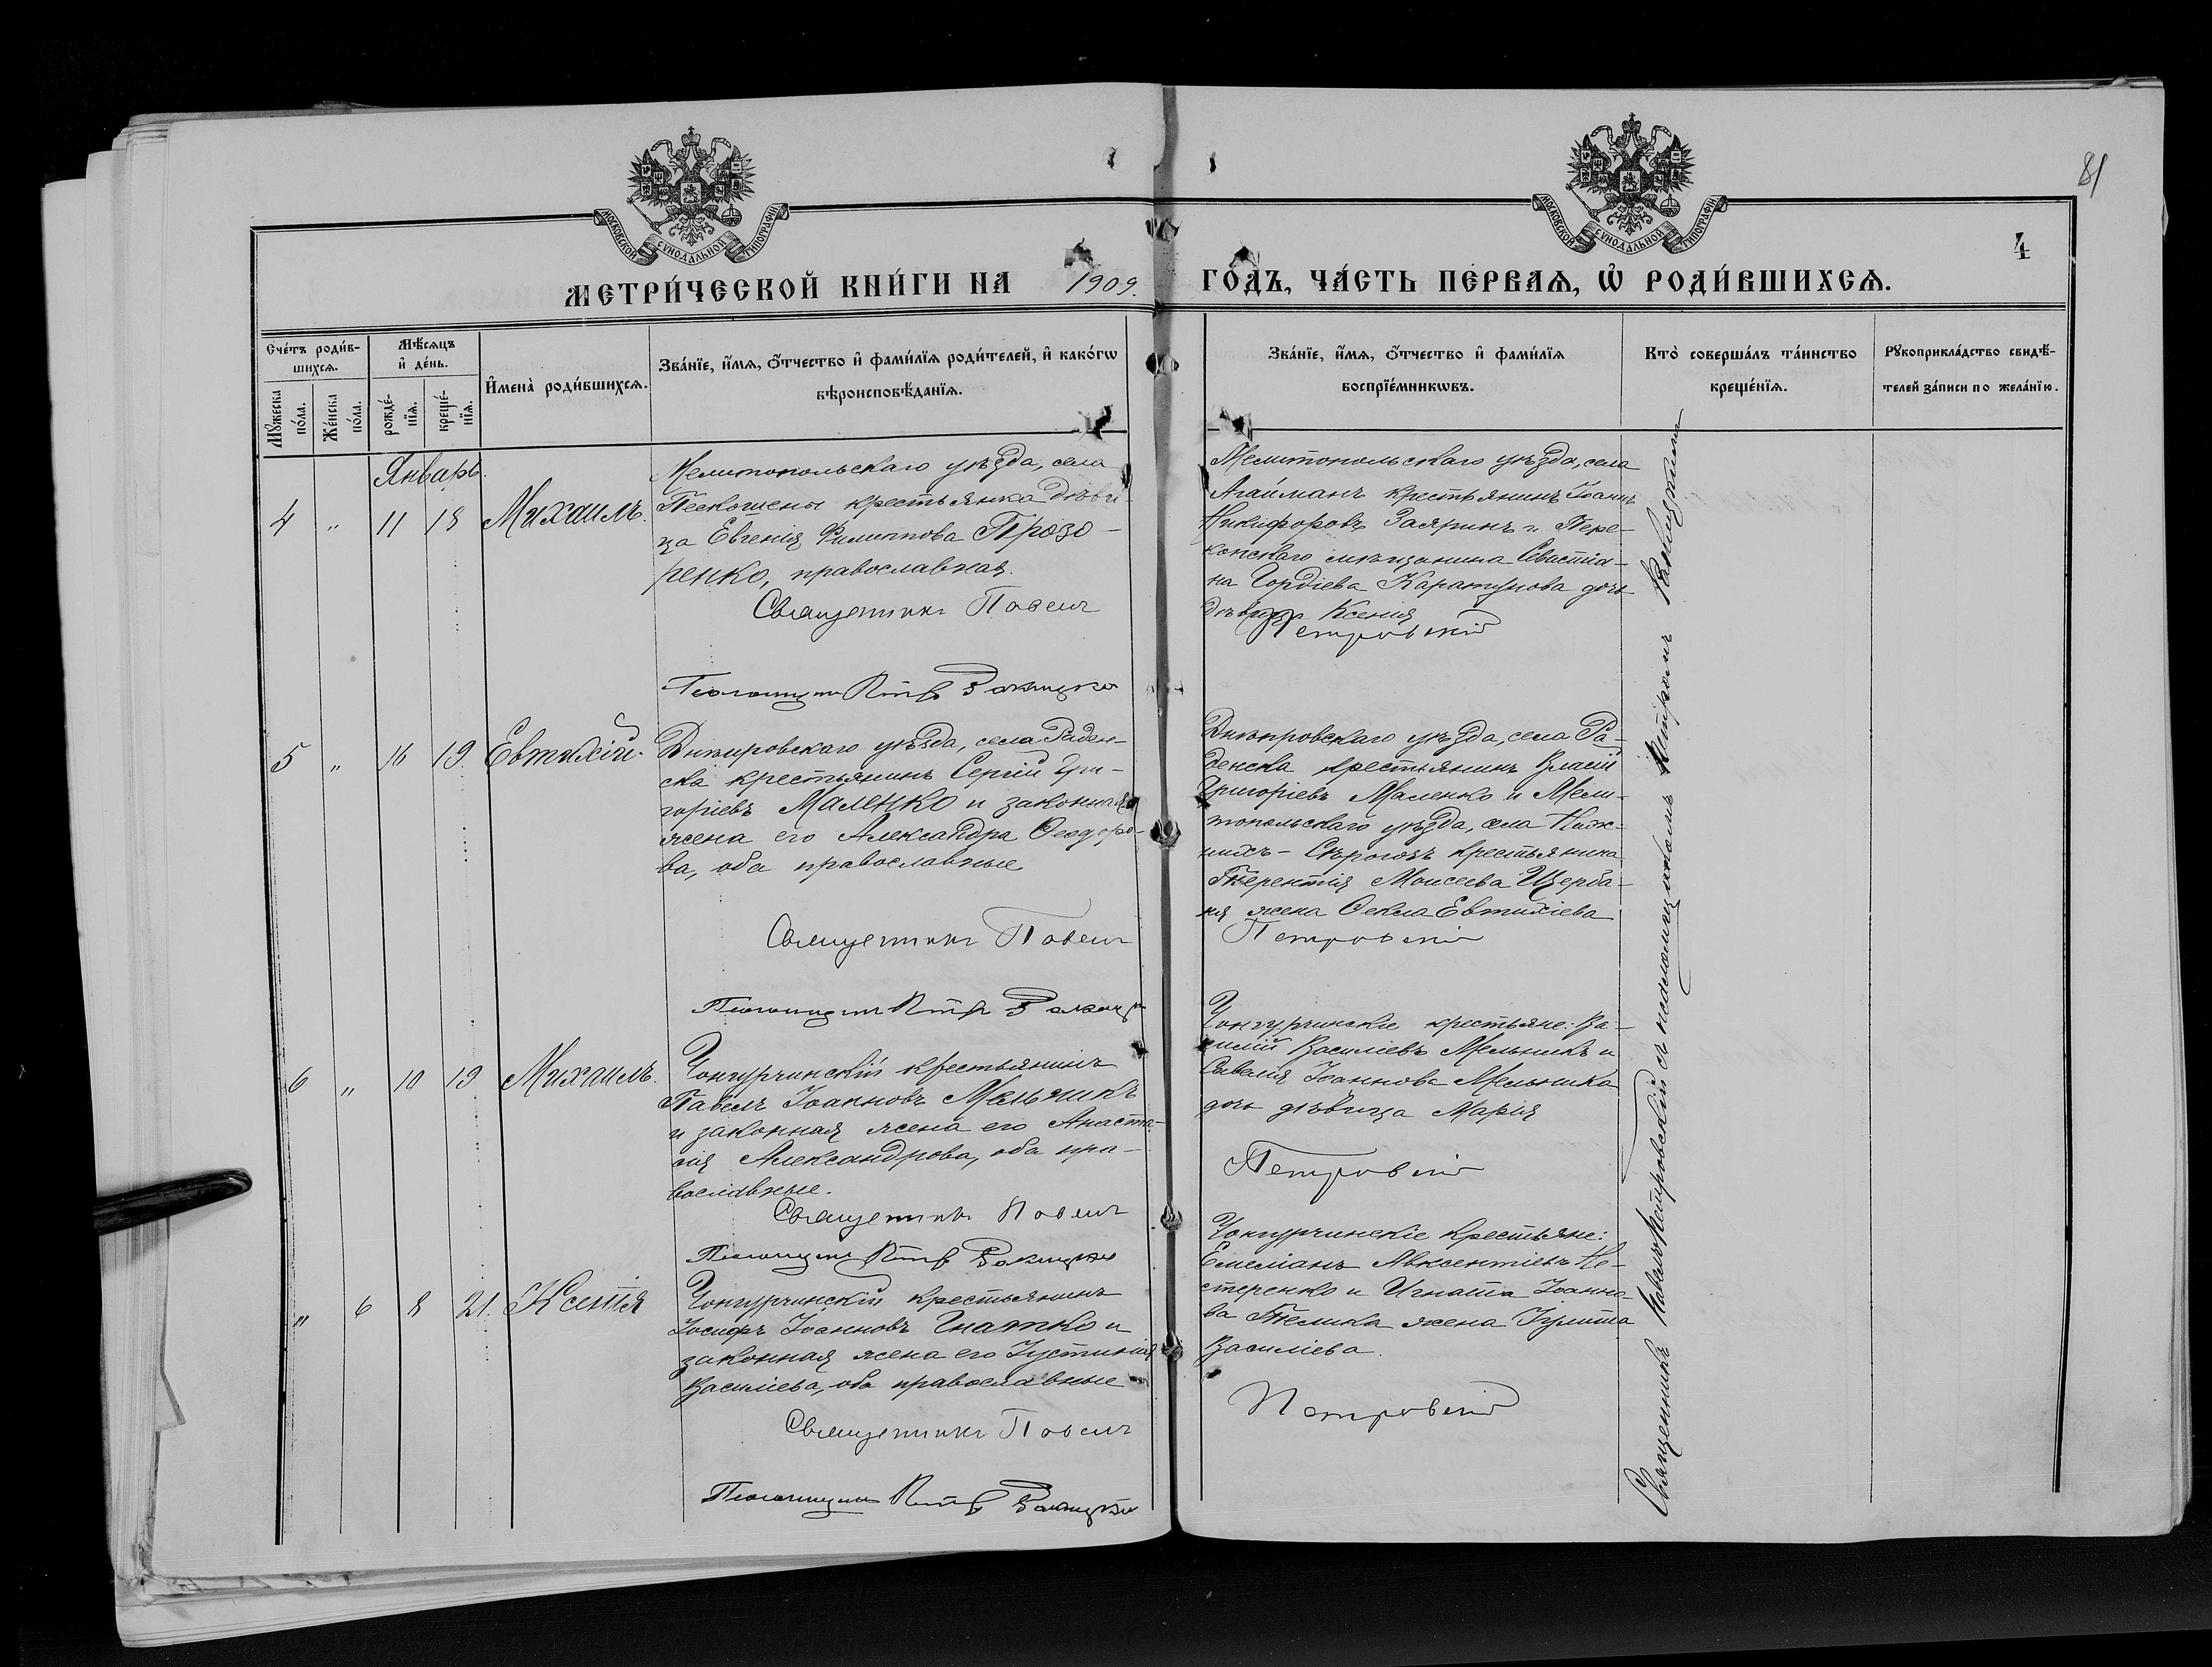 81
4
МОСКОВСКОЙ СѴНОДАЛЬНОЙ ТИПОГРАФІИ
МОСКОВСКОЙ СѴНОДАЛЬНОЙ ТИПОГРАФІИ
МЕТРИ́ЧЕСКОЙ КНИ́ГИ НА 1909. ГО́ДЪ, ЧА́СТЬ ПЕРВАѦ, Ѡ҆ РОДИ́ВШИХСѦ.
Сче́тъ роди́в-
шихсѧ.
Мꙋ́жеска по́ла.
Же́нска по́ла.
Мѣ́сѧцъ
и҆ де́нь.
рожде́-
нїѧ.
креще́-
нїѧ.
И҆мена̀ роди́вшихсѧ.
Зва́нїе, и҆́мѧ, ѻ҆́тчество и҆ фами́лїѧ роди́телей, и҆ како́гѡ
вѣроисповѣ́данїѧ.
Зва́нїе, и҆́мѧ, ѻ҆́тчество и҆ фами́лїѧ
воспрїе́мникѡвъ.
Кто̀ соверша́лъ та́инство
креще́нїѧ.
Рꙋкоприкла́дство свидѣ́-
телей за́писи по жела́нїю.
Январь.
4 " 11 18 Михаилъ.
Мелитопольскаго уѣзда, села
Пескошены крестьянка дѣви-
ца Евгенія Филиппова Прозо-
ренко, православная.
Священникъ Павелъ
Псаломщикъ Петръ Ракицкій
Мелитопольскаго уѣзда, села
Агайманъ крестьянинъ Іоаннъ
Никифоровъ Заяринъ и Пере-
копскаго мѣщанина Севастіа-
на Гордіева Карагцнова дочь
дѣвица Ксенія
Петровскій
5 " 16 19. Евтихій.
Днѣпровскаго уѣзда, села Раден-
ска крестьянинъ Сергій Гри-
горіевъ Маленко и законная
жена его Александра Ѳеодоро-
ва, оба православные
Священникъ Павелъ
Псаломщикъ Петръ Ракицкій
Днѣпровскаго уѣзда, села Ра-
денска крестьянинъ Власій
Григоріевъ Маленко и Мели-
топольскаго уѣзда, села Ниж-
нихъ-Сѣрогозъ крестьянина
Терентія Моисеева Щерба-
ня жена Ѳекла Евтихіева
Петровскій
6 " 10 19 Михаилъ.
Чонгурчинскій крестьянинъ
Павелъ Іоанновъ Мельникъ
и законная жена его Анаста-
сія Александрова, оба пра-
вославные.
Священникъ Павелъ
Псаломщикъ Петръ Ракицкій
Чонгурчинскіе крестьяне: Ва-
силій Василіевъ Мельникъ и
Савелія Іоаннова Мельника
дочь дѣвица Марія
Петровскій
" 6 8 21. Ксенія
Чонгурчинскій крестьянинъ
Іосифъ Іоанновъ Гнатко и
законная жена его Іустинія
Василіева, оба православные
Священникъ Павелъ
Псаломщикъ Петръ Ракицкій
Чонгурчинскіе крестьяне:
Емеліанъ Авксентіевъ Не-
стеренко и Игнатія Іоанно-
ва Телика жена Іулитта
Василіева.
Петровскій
Священникъ Павелъ Петровскій съ псаломщикомъ Петромъ Ракицкимъ